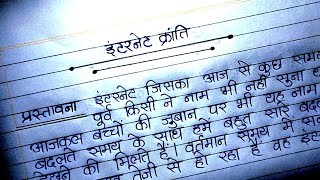 इंटरनेट क्रांति
प्रस्तावना इंटरनेट जिसका आज से कुछ समय
पूर्व किसी ने नाम भी नहीं सुना था
आजकल बच्चों की जुबान पर भी यह नाम
बदलते समय के साथ हमें बहुत सारे बदल
देखने को मिलते हैं। वर्तमान समय में
तेजी से हो रहा है वह इंट